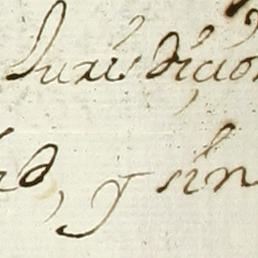 Jurisdicion
y sin